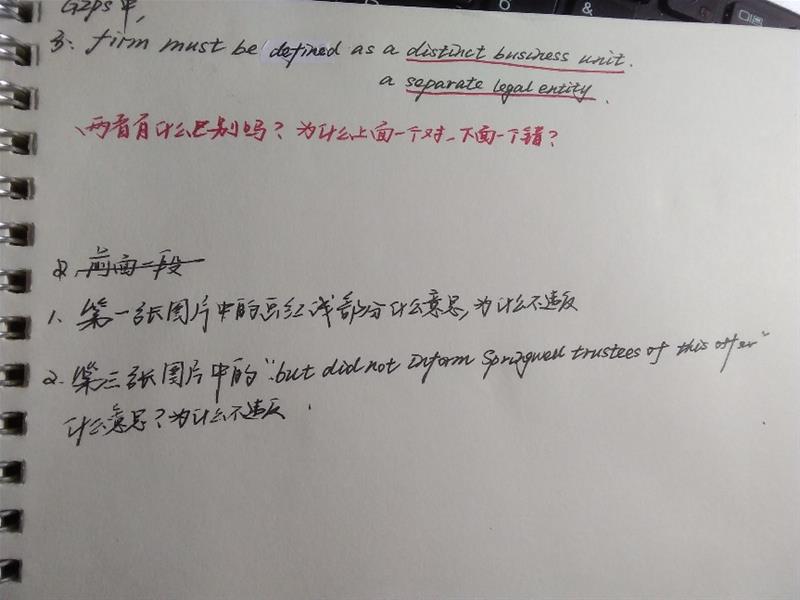 GIPS中,
3: firm must be defined as a distinct business unit.
a separate legal entity.
、两者有什么区别吗？为什么上面一个对、下面一个错？
前面一段
1、第一张图片中的画红线部分什么意思,为什么不违反
2. 第三张图片中的"but did not inform Springwell trustees of this offer"
什么意思？为什么不违反.